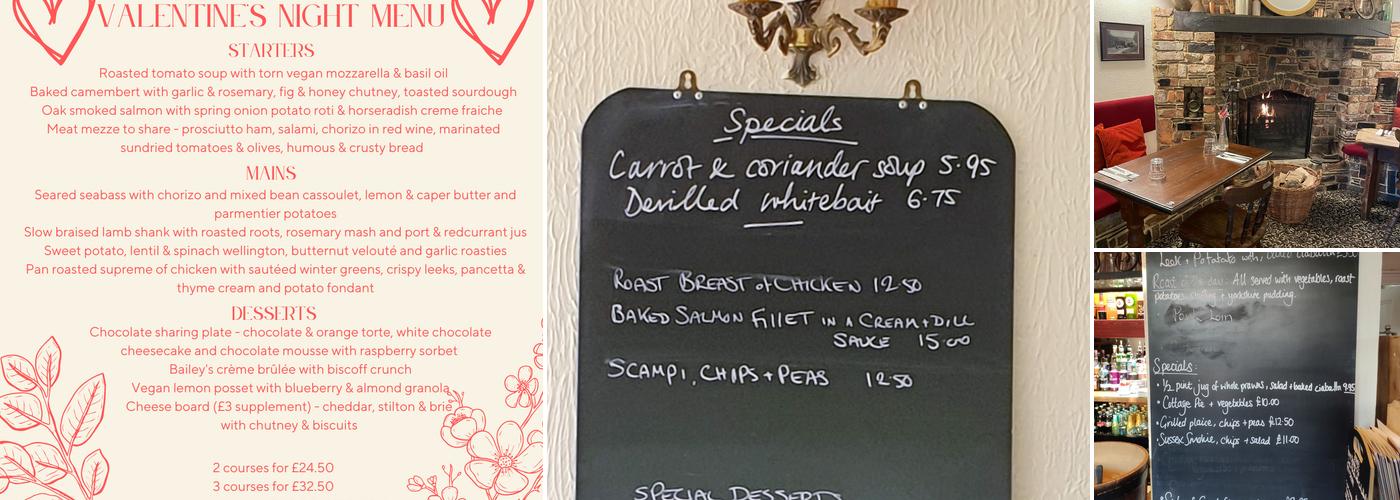 VALENTINE'S NIGHT MENU
STARTERS
Roasted tomato soup with torn vegan mozzarella & basil oil
Baked camembert with garlic & rosemary, fig & honey chutney, toasted sourdough
Oak smoked salmon with spring onion potato roti & horseradish creme fraiche
Meat mezze to share - prosciutto ham, salami, chorizo in red wine, marinated
sundried tomatoes & olives, humous & crusty bread
MAINS
Seared seabass with chorizo and mixed bean cassoulet, lemon & caper butter and
parmentier potatoes
Slow braised lamb shank with roasted roots, rosemary mash and port & redcurrant jus
Sweet potato, lentil & spinach wellington, butternut velouté and garlic roasties
Pan roasted supreme of chicken with sautéed winter greens, crispy leeks, pancetta &
thyme cream and potato fondant
DESSERTS
Chocolate sharing plate - chocolate & orange torte, white chocolate
cheesecake and chocolate mousse with raspberry sorbet
Bailey's crème brûlée with biscoff crunch
Vegan lemon posset with blueberry & almond granola
Cheese board (£3 supplement) - cheddar, stilton & brie
with chutney & biscuits
2 courses for £24.50
3 courses for £32.50
Specials
Carrot & coriander soup 5.95
Devilled whitebait 6.75
ROAST BREAST OF CHICKEN 12.50
BAKED SALMON FILLET IN A CREAM + DILL
SAUCE 15.00
SCAMPI, CHIPS + PEAS 12.50
SPECIAL DESSERTS
Leek + Potatoto with
Roast of the day: All served with vegetables, roast
potatoes, stuffing + yorkshire pudding.
Pork Loin
Specials:
• 1/2 pint, jug of whole prawns, salad + baked ciabatta 9.95
• Cottage Pie + vegetables £10.00
• Grilled plaice, chips + peas £12.50
• Sussex Smokie, chips + salad £11.00